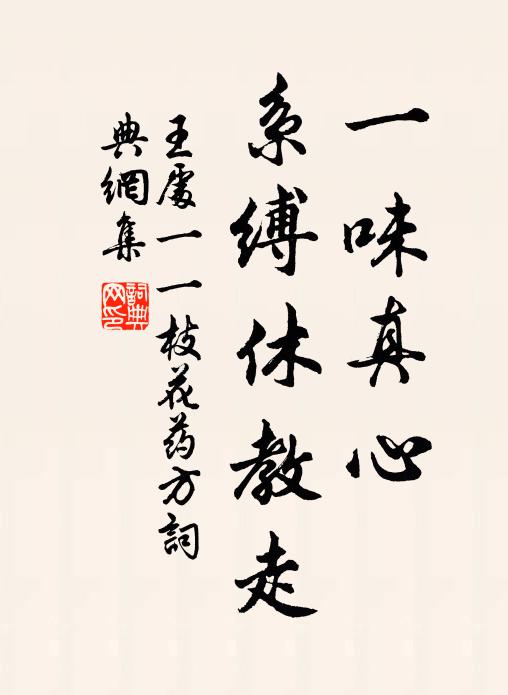 一味真心
系縛休教走
王處一一枝花药方詞
典網集
詞典网印